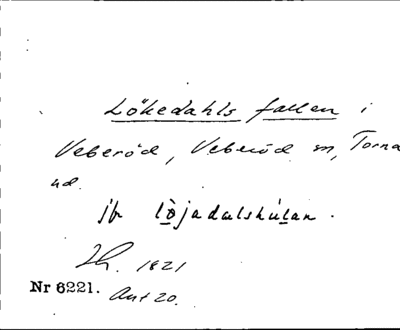 Lökedahls fallen i
Veberöd, Veberöd sn, Torna
hd.
jfr löjadalshúlan.
Lh. 1821
Nr 6221. Ant 20.